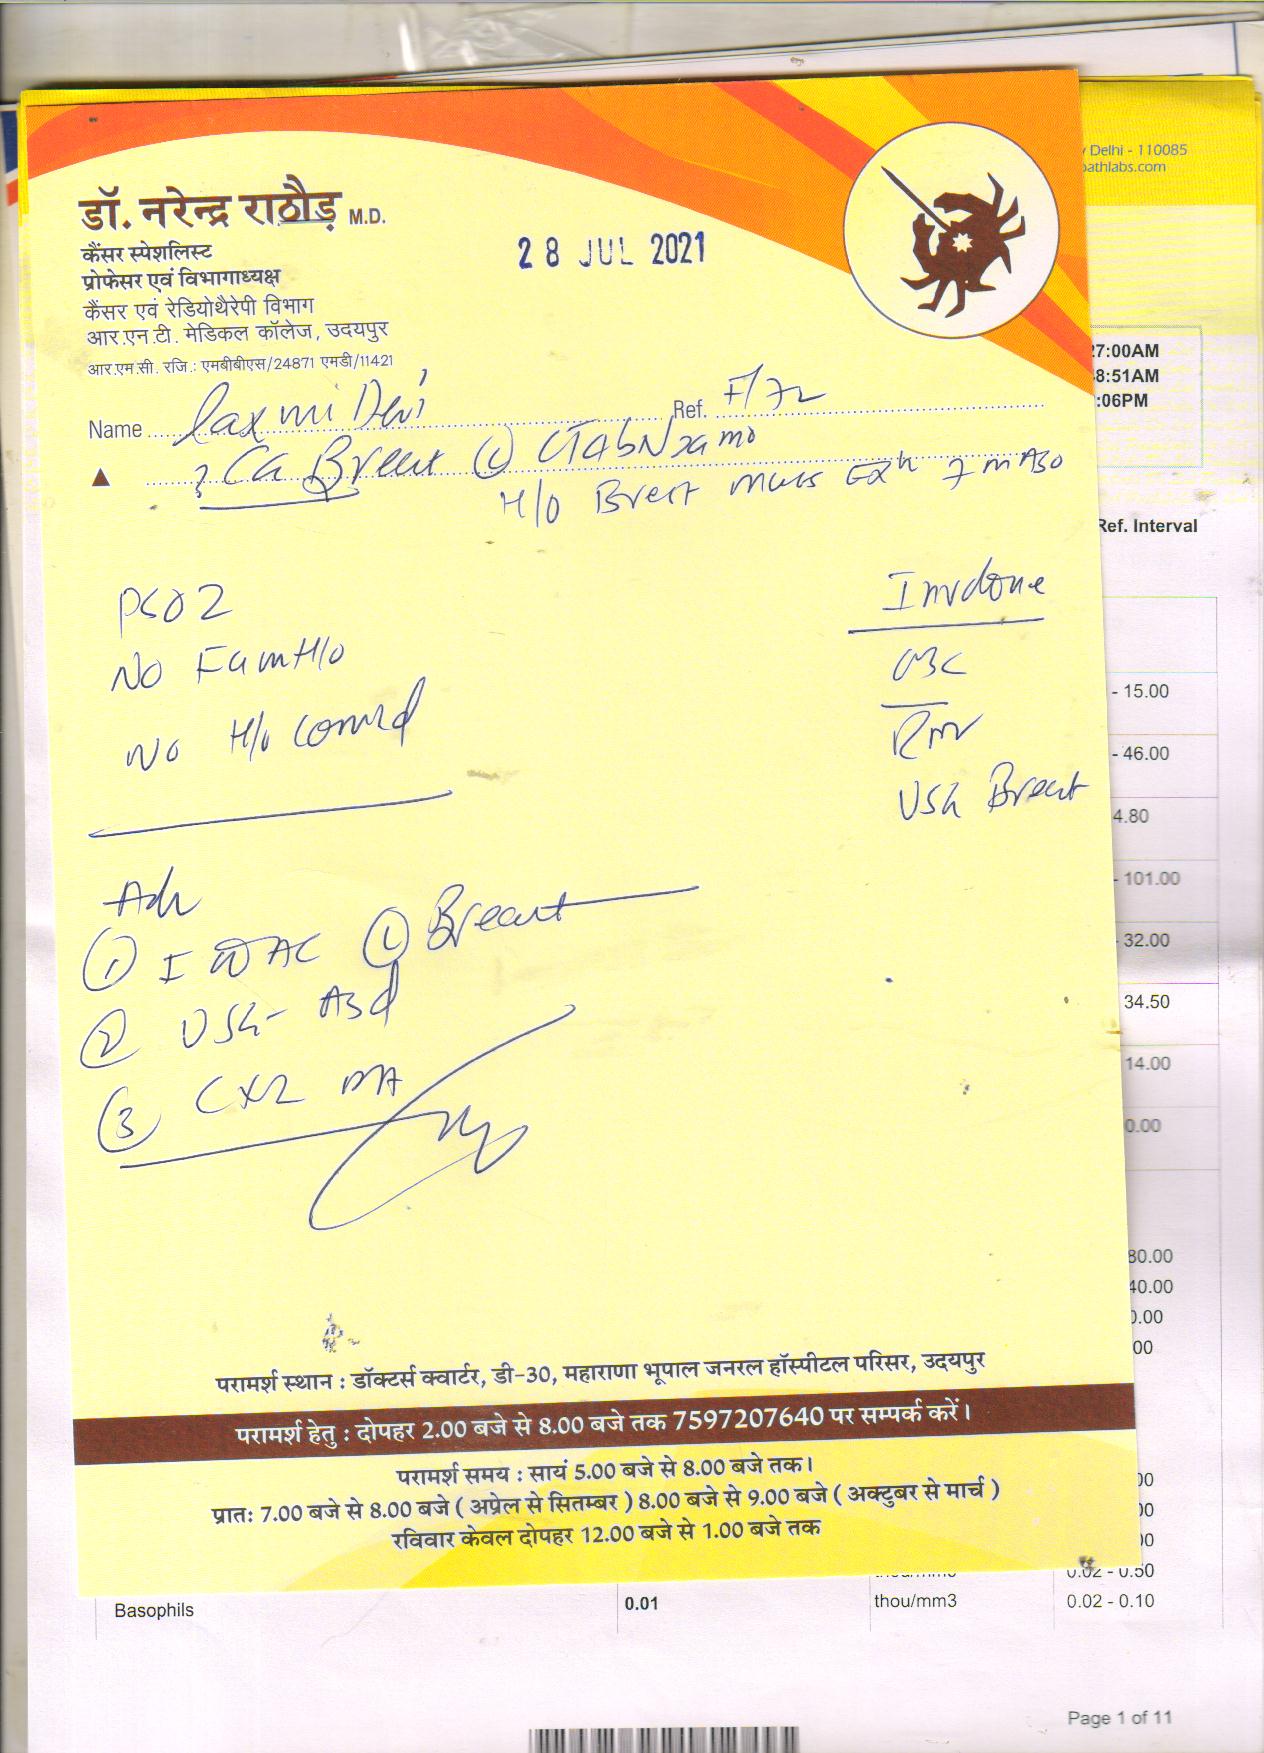 डॉ. नरेन्द्र राठौड़ M.D.
कैंसर स्पेशलिस्ट
प्रोफेसर एवं विभागाध्यक्ष
कैंसर एवं रेडियोथैरेपी विभाग
आर.एन.टी. मेडिकल कॉलेज, उदयपुर
आर.एम.सी. रजि.: एमबीबीएस/24871 एमडी/11421
28 JUL 2021
Delhi - 110085
pathlabs.com
27:00AM
8:51AM
:06PM
Name Laxmi Devi Ref. F/72
? Ca Breast (L) cT4bNxaM0
H/O Breast mass
Ref. Interval
PS02
No Fam H/o
No H/o comrd
Inv done
CBC
USG Breast
- 15.00
- 46.00
4.80
- 101.00
32.00
34.50
14.00
0.00
Adv
(1) (L) Breast
(2) USG- Abd
(3) CXR PA
80.00
40.00
0.00
00
परामर्श स्थान : डॉक्टर्स क्वार्टर, डी-30, महाराणा भूपाल जनरल हॉस्पीटल परिसर, उदयपुर
परामर्श हेतु : दोपहर 2.00 बजे से 8.00 बजे तक 7597207640 पर सम्पर्क करें।
परामर्श समय : सायं 5.00 बजे से 8.00 बजे तक।
प्रातः 7.00 बजे से 8.00 बजे ( अप्रेल से सितम्बर ) 8.00 बजे से 9.00 बजे ( अक्टुबर से मार्च )
रविवार केवल दोपहर 12.00 बजे से 1.00 बजे तक
00
00
00
0.02 - 0.50
Basophils 0.01 thou/mm3 0.02 - 0.10
Page 1 of 11